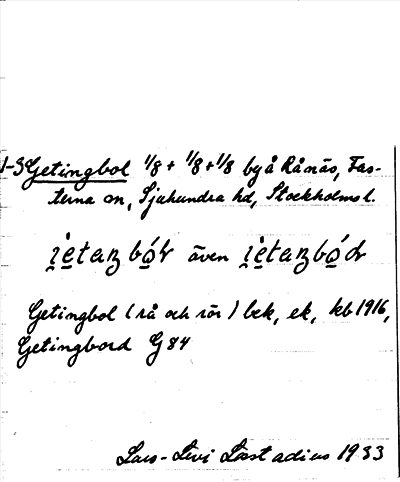 1-3 Getingbol 1/8 + 1/8 + 1/8 by å Rånäs, Fas-
terna sn, Sjuhundra hd, Stockholms l.
i̯è̱taŋbó̱r även i̯è̱taŋbó̱dr
Getingbol (rå och rör) bek, ek, kb 1916,
Getingbord G 84
Lars-Levi Læstadius 1933